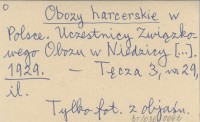 Obozy harcerskie w
Polsce. Uczestnicy Związko-
wego Obozu w Niedzicy [...].
1929. – Tęcza 3, nr 29,
il.
Tylko fot. z objaśn.